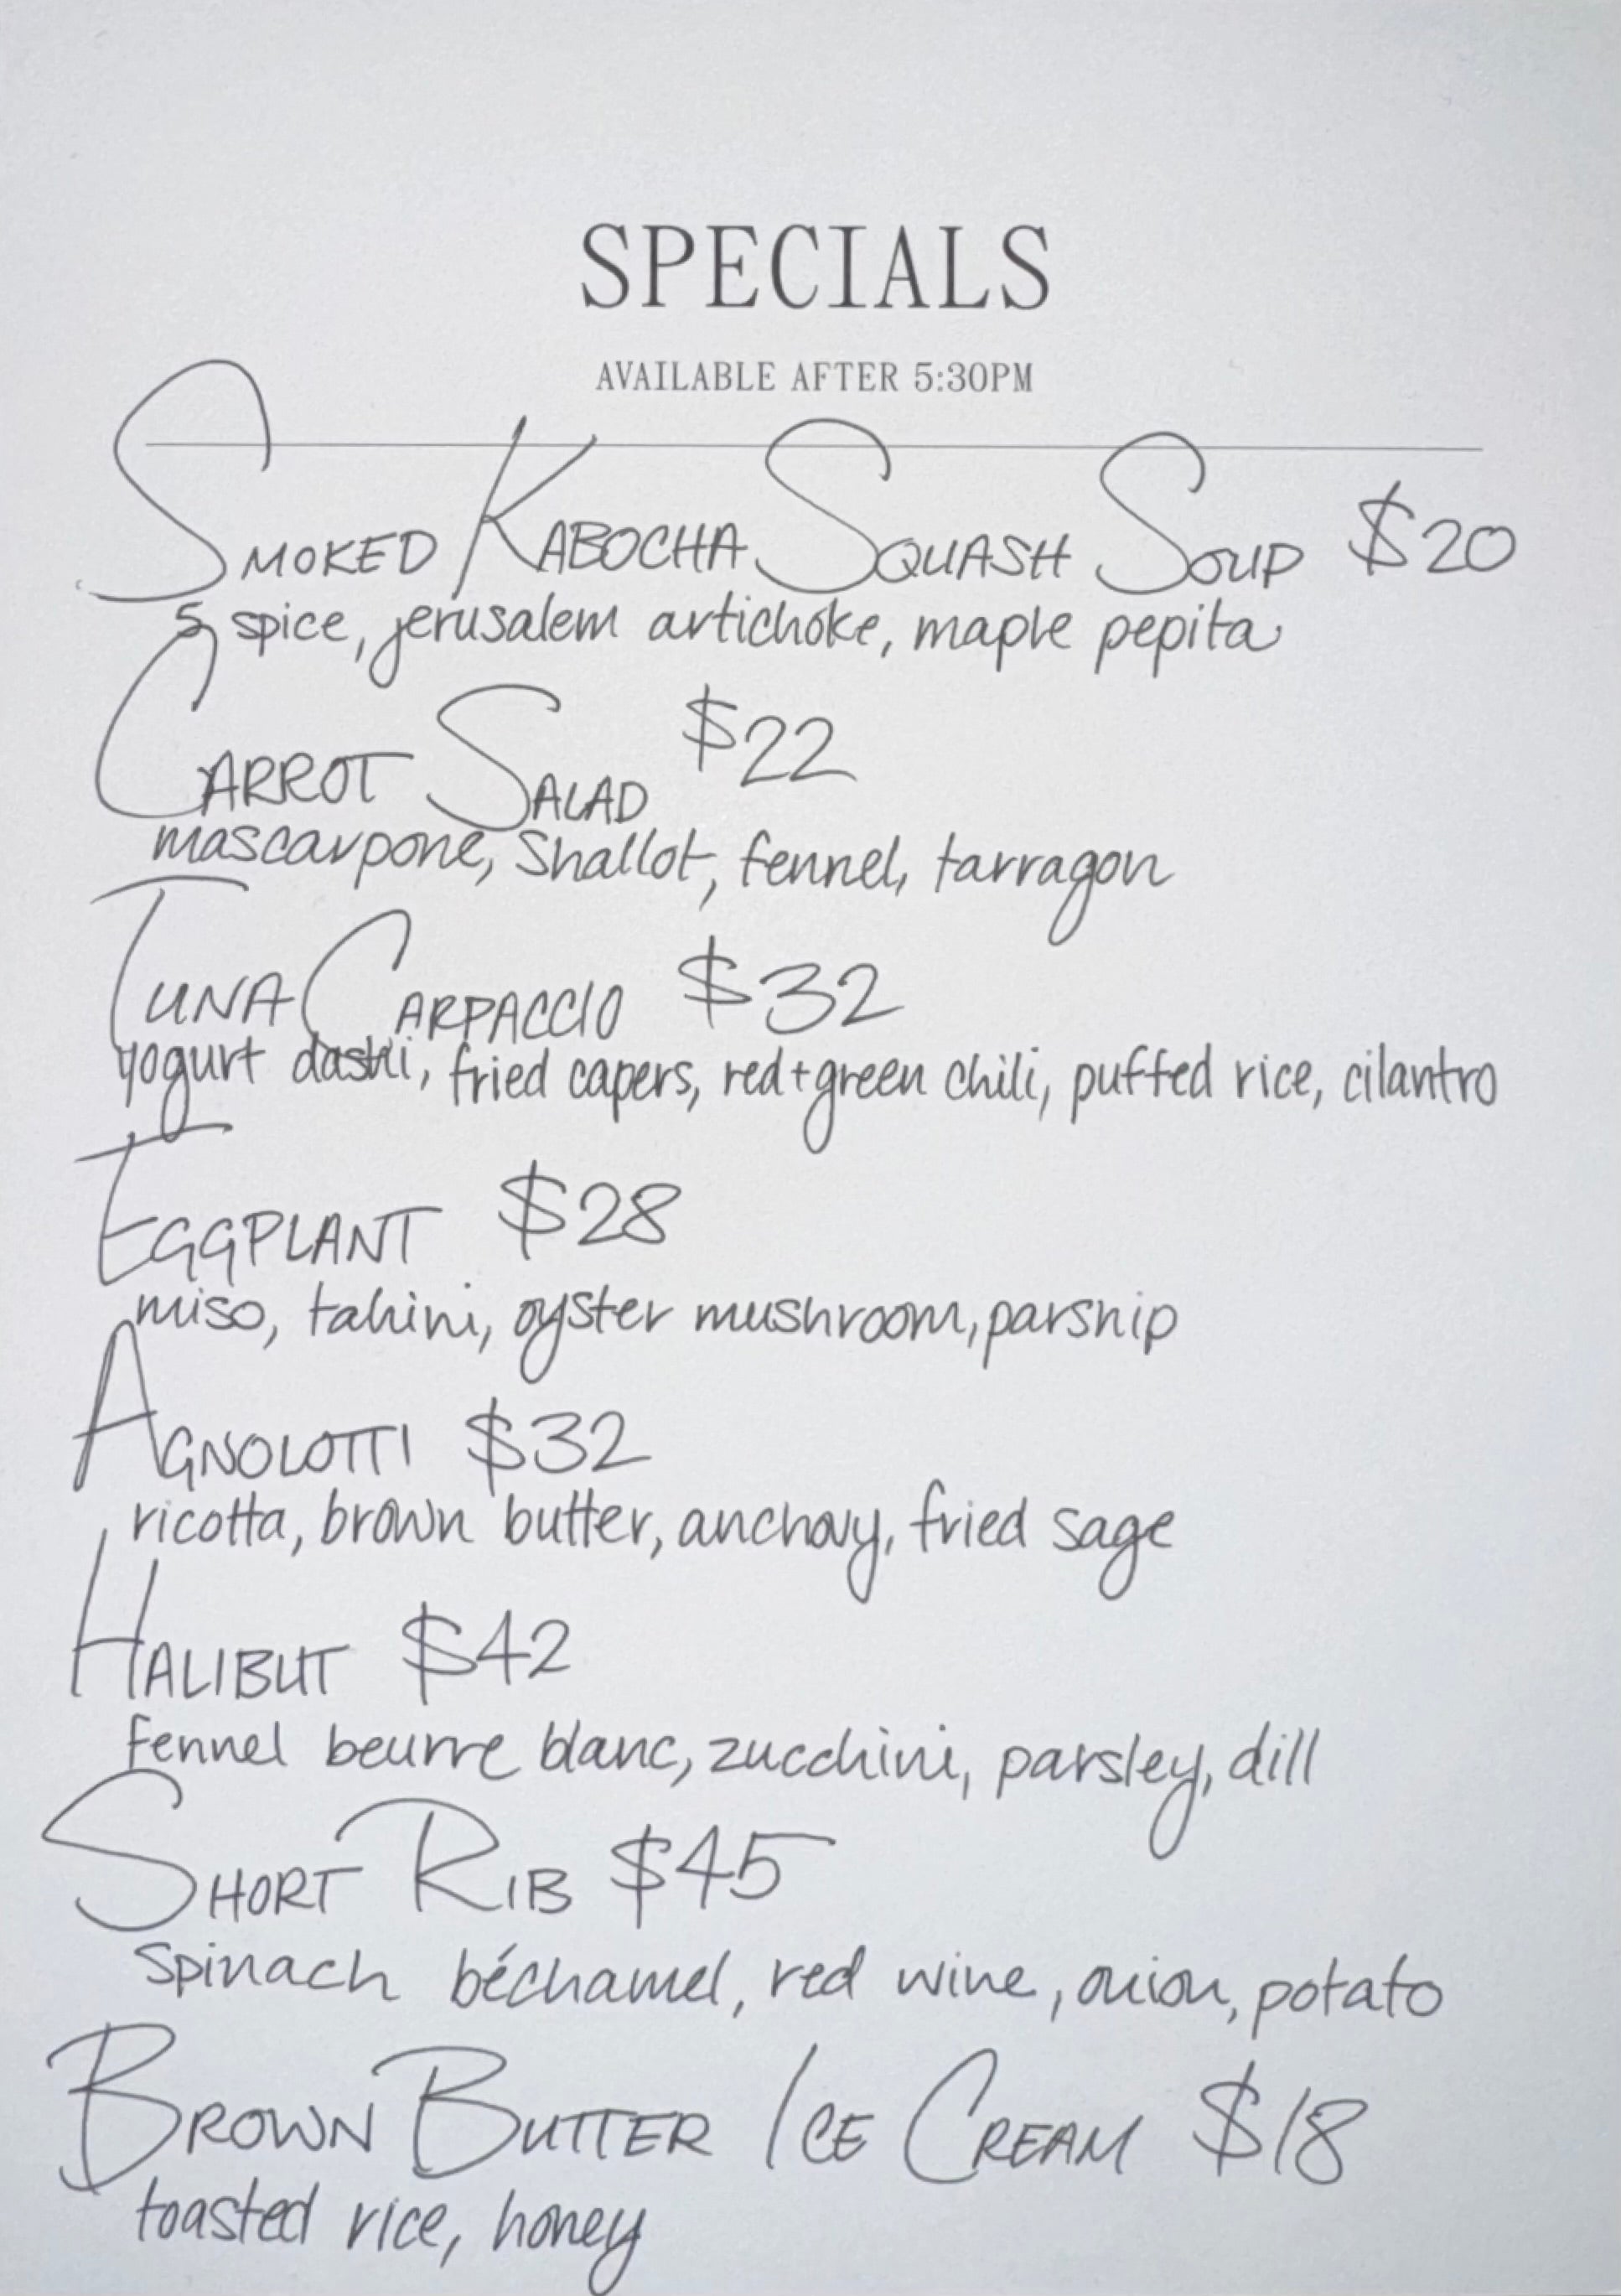 SPECIALS
AVAILABLE AFTER 5:30PM
SMOKED KABOCHA SQUASH SOUP $20
5 spice, jerusalem artichoke, maple pepita
CARROT SALAD $22
mascarpone, shallot, fennel, tarragon
TUNA CARPACCIO $32
yogurt dashi, fried capers, red+green chili, puffed rice, cilantro
EGGPLANT $28
miso, tahini, oyster mushroom, parsnip
AGNOLOTTI $32
ricotta, brown butter, anchovy, fried sage
HALIBUT $42
fennel beurre blanc, zucchini, parsley, dill
SHORT RIB $45
spinach béchamel, red wine, onion, potato
BROWN BUTTER ICE CREAM $18
toasted rice, honey